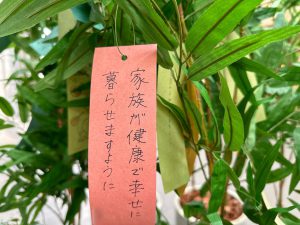 家族が健康で幸せに
暮らせますように